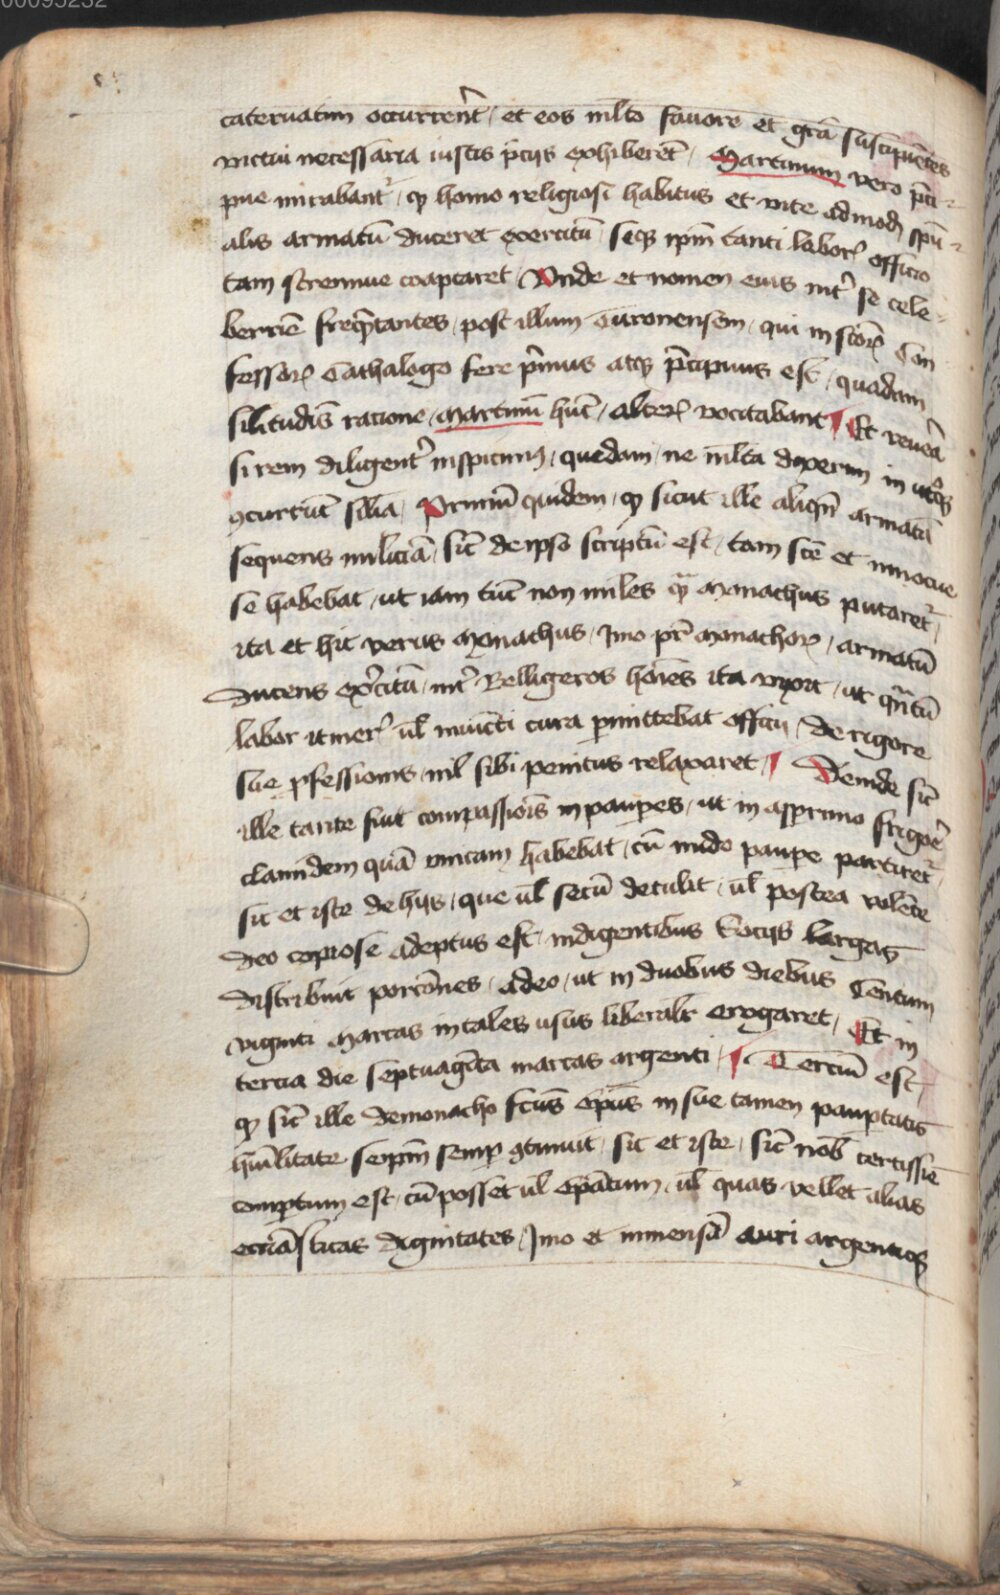 00095232
cateruatim occurrer̃t / et eos ml̃to fauore et gr̃a suscipiẽtes
victui necessaria iustis p̃cijs exhiberẽt / Martinum vero p̃ci-
pue mirabant᷑ / qꝫ homo religiosi habitus et vite admodũ sp̃u-
alis armatũ duceret exercitũ / seqꝫ ip̃m tanti labor᷑ officio
tam strennue coaptaret / Vnde et nomen eius int᷑ se cele-
berriẽ freq̃ntantes / post illum turonensem / qui in sc̃oꝝ Con
fessoꝝ Cathalogo fere p̃mus atqꝫ p̃cipuus est / quadam
sil̃itudĩs racione / Martinũ hũc / alterũ vocitabant / Et reuera
si rem diligent᷑ inspicimꝰ / quedam / ne ml̃ta dixerim in utroqꝫ
ꝯcurrũt sil̃ia / Primũ quidem / qꝫ sicut ille aliqñ armatã
sequens miliciã / sic̃ de ipso scriptũ est / tam sc̃e et innocue
se habebat / ut iam tũc non miles qᷓ Monachus putaret᷑ /
ita et hic verus Monachus / Imo pr̃ Monachoꝝ / armatũ
Ducens ex̃citũ / int᷑ Belligeros hoĩes ita vixit / ut qñtũ
labor itiner᷑ ul̃ iniũcti cura p̱mittebat officij / de rigore
sue ꝓfessionis / nil sibi penitus relaxaret / Deinde sic̃
ille tante fuit compassiõis in paup̱es / ut in asp̱rimo frigor̃e
clamidem quã vnicam habebat / cũ nudo paup̱e partiret᷑ /
sic et iste de hijs / que ul̃ secũ detulit / ul̃ postea volẽte
deo copiose adeptus est / indigentibus Socijs largas
distribuit porcões / adeo / ut in duobus diebus Centum
viginti Marcas in tales usus liberalit᷑ erogaret / Et in
tercia die septuagĩta marcas argenti / Terciũ est /
qꝫ sic̃ ille de monacho fc̃us ep̃us in sue tamen paup̱tatis
huĩlitate seip̃m semp̱ ꝯtinuit / sic et iste / sic̃ nob̃ certissiẽ
comp̱tum est / cũ posset ul̃ ep̃atum / ul̃ quas vellet alias
eccl̃iasticas dignitates / Imo et inmensũ auri argentiqꝫ